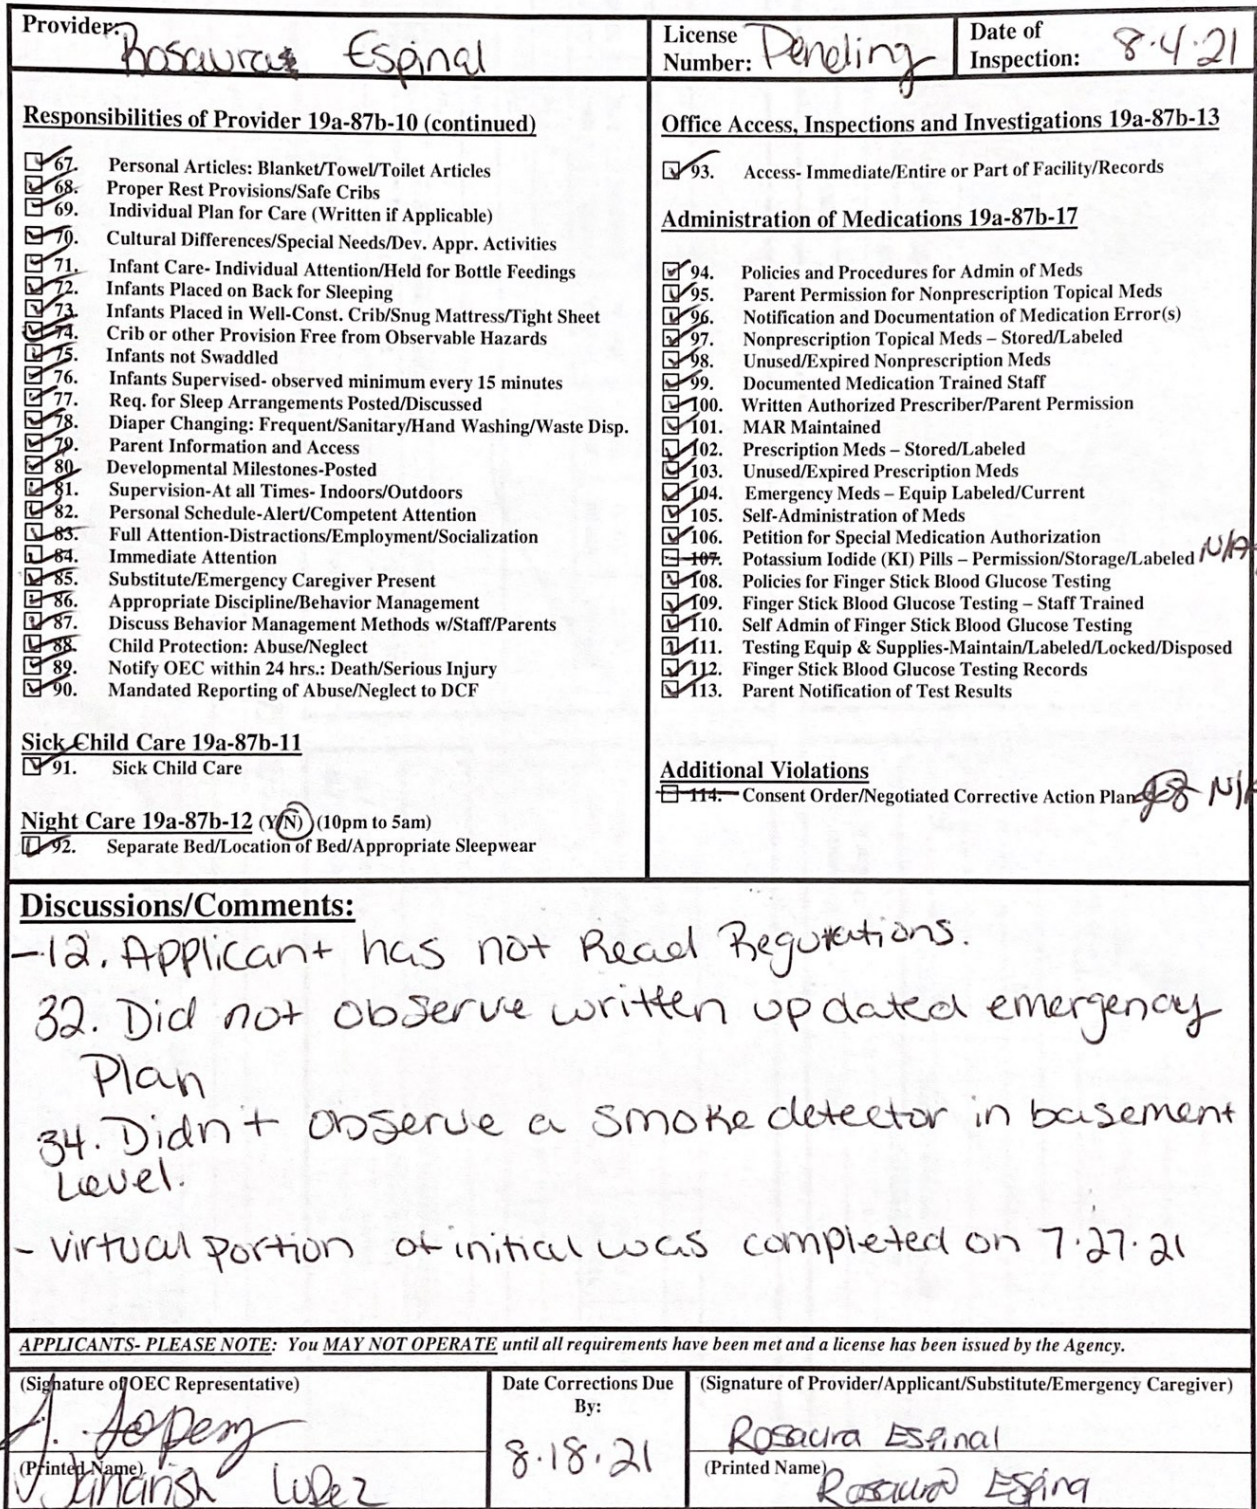 Provider: Rosaura Espinal
License Number: Pending
Date of Inspection: 8.4.21
Responsibilities of Provider 19a-87b-10 (continued)
67. Personal Articles: Blanket/Towel/Toilet Articles
68. Proper Rest Provisions/Safe Cribs
69. Individual Plan for Care (Written if Applicable)
70. Cultural Differences/Special Needs/Dev. Appr. Activities
71. Infant Care- Individual Attention/Held for Bottle Feedings
72. Infants Placed on Back for Sleeping
73. Infants Placed in Well-Const. Crib/Snug Mattress/Tight Sheet
74. Crib or other Provision Free from Observable Hazards
75. Infants not Swaddled
76. Infants Supervised- observed minimum every 15 minutes
77. Req. for Sleep Arrangements Posted/Discussed
78. Diaper Changing: Frequent/Sanitary/Hand Washing/Waste Disp.
79. Parent Information and Access
80. Developmental Milestones-Posted
81. Supervision-At all Times- Indoors/Outdoors
82. Personal Schedule-Alert/Competent Attention
83. Full Attention-Distractions/Employment/Socialization
84. Immediate Attention
85. Substitute/Emergency Caregiver Present
86. Appropriate Discipline/Behavior Management
87. Discuss Behavior Management Methods w/Staff/Parents
88. Child Protection: Abuse/Neglect
89. Notify OEC within 24 hrs.: Death/Serious Injury
90. Mandated Reporting of Abuse/Neglect to DCF
Sick Child Care 19a-87b-11
91. Sick Child Care
Night Care 19a-87b-12 (Y/N) (10pm to 5am)
92. Separate Bed/Location of Bed/Appropriate Sleepwear
Office Access, Inspections and Investigations 19a-87b-13
93. Access- Immediate/Entire or Part of Facility/Records
Administration of Medications 19a-87b-17
94. Policies and Procedures for Admin of Meds
95. Parent Permission for Nonprescription Topical Meds
96. Notification and Documentation of Medication Error(s)
97. Nonprescription Topical Meds – Stored/Labeled
98. Unused/Expired Nonprescription Meds
99. Documented Medication Trained Staff
100. Written Authorized Prescriber/Parent Permission
101. MAR Maintained
102. Prescription Meds – Stored/Labeled
103. Unused/Expired Prescription Meds
104. Emergency Meds – Equip Labeled/Current
105. Self-Administration of Meds
106. Petition for Special Medication Authorization
107. Potassium Iodide (KI) Pills – Permission/Storage/Labeled N/A
108. Policies for Finger Stick Blood Glucose Testing
109. Finger Stick Blood Glucose Testing – Staff Trained
110. Self Admin of Finger Stick Blood Glucose Testing
111. Testing Equip & Supplies-Maintain/Labeled/Locked/Disposed
112. Finger Stick Blood Glucose Testing Records
113. Parent Notification of Test Results
Additional Violations
114. Consent Order/Negotiated Corrective Action Plan N/A
Discussions/Comments:
-12. Applicant has not Read Regulations.
32. Did not observe written updated emergency
Plan
34. Didn't observe a smoke detector in basement
Level.
- virtual portion of initial was completed on 7.27.21
APPLICANTS- PLEASE NOTE: You MAY NOT OPERATE until all requirements have been met and a license has been issued by the Agency.
(Signature of OEC Representative)
J. Lopez
(Printed Name)
Lopez
Date Corrections Due By:
8.18.21
(Signature of Provider/Applicant/Substitute/Emergency Caregiver)
Rosaura Espinal
(Printed Name)
Rosaura Espina